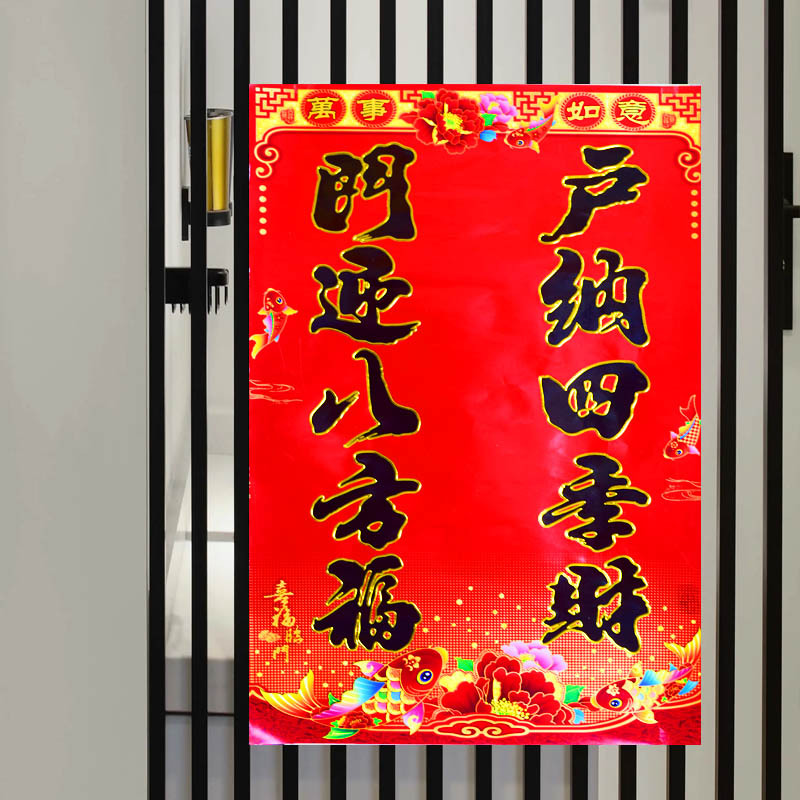 萬事如意
門迎八方福
户納四季財
喜福臨門